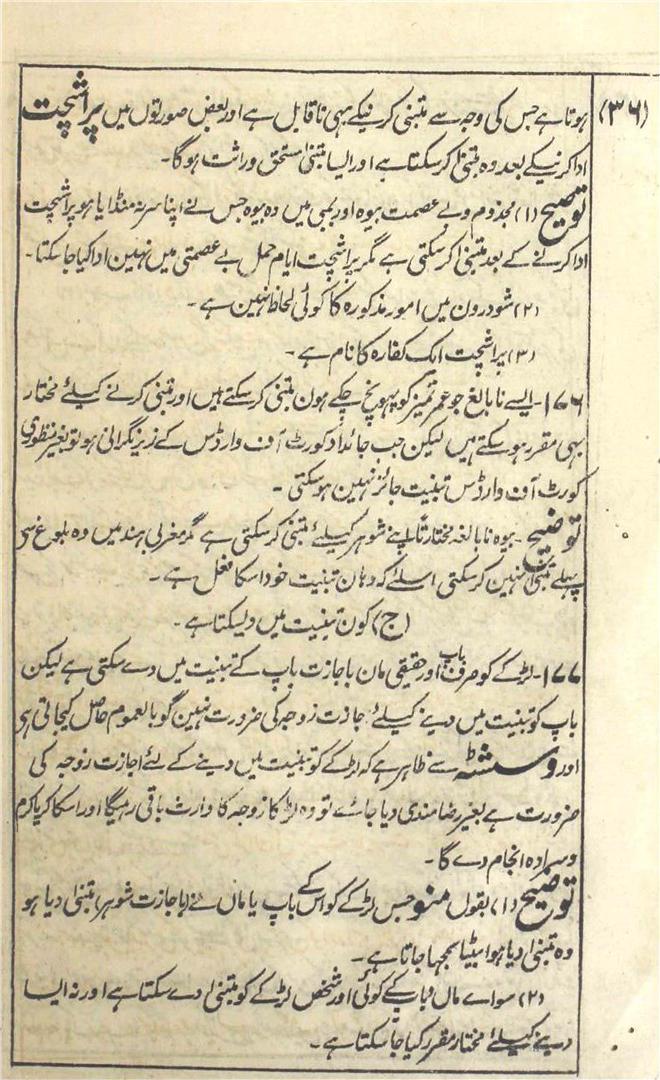 (۳۶)
ہوتا ہے جس کی وجہ سے متبنیٰ کرنیکے بھی ناقابل ہے اور بعض صورتوں میں پراشچت
ادا کرنیکے بعد وہ متبنیٰ کرسکتا ہے اور ایسا متبنیٰ مستحق وراثت ہوگا۔
توضیح (۱) مجذوم و بے عصمت بیوہ اور بمبئی میں وہ بیوہ جس نے اپنا سر نہ منڈایا ہو پراشچت
ادا کرنے کے بعد متبنیٰ کرسکتی ہے مگر پراشچت ایام حمل بے عصمتی میں نہین ادا کیا جا سکتا۔
(۲) شودرون میں امور مذکورہ کا کوئی لحاظ نہین ہے۔
(۳) پراشچت ایک کفارہ کا نام ہے۔
۱۷۶۔ ایسے نابالغ جو عمر تمیز کو پہونچ چکے ہون متبنیٰ کرسکتے ہیں اور متبنیٰ کرنے کیلئے مختار
بھی مقرر ہوسکتے ہیں لیکن جب جائداد کورٹ آف وارڈس کے زیر نگرانی ہو تو بغیر منظوری
کورٹ آف وارڈس تبنیت جائز نہین ہوسکتی۔
توضیح۔ بیوہ نابالغہ مختارتاً اپنے شوہر کیلئے متبنیٰ کرسکتی ہے مگر مغربی ہند میں وہ بلوغ سی
پہلے متبنیٰ نہین کرسکتی اسلئے کہ وہان تبنیت خود اسکا فعل ہے۔
(ج) کون تبنیت میں دیسکتا ہے۔
۱۷۷۔ لڑکے کو صرف باپ اور حقیقی مان باجازت باپ کے تبنیت میں دے سکتی ہے لیکن
باپ کو تبنیت میں دینے کیلئے اجازت زوجہ کی ضرورت نہین گو بالعموم حاصل کیجاتی ہی
اور وسشٹہ سے ظاہر ہے کہ لڑکے کو تبنیت میں دینے کے لئے اجازت زوجہ کی
ضرورت ہے بغیر رضامندی دیا جائے تو وہ لڑکا زوجہ کا وارث باقی رہیگا اور اسکا کریا کرم
وسرادہ انجام دے گا۔
توضیح (۱) بقول منو جس لڑکے کو اس کے باپ یا ماں نے (باجازت شوہر) متبنیٰ دیا ہو
وہ متبنیٰ دیا ہوا بیٹا سمجھا جاتا ہے۔
(۲) سواے ماں و باپ کے کوئی اور شخص لڑکے کو متبنیٰ دے سکتا ہے اور نہ ایسا
دینے کیلئے مختار مقرر کیا جا سکتا ہے۔